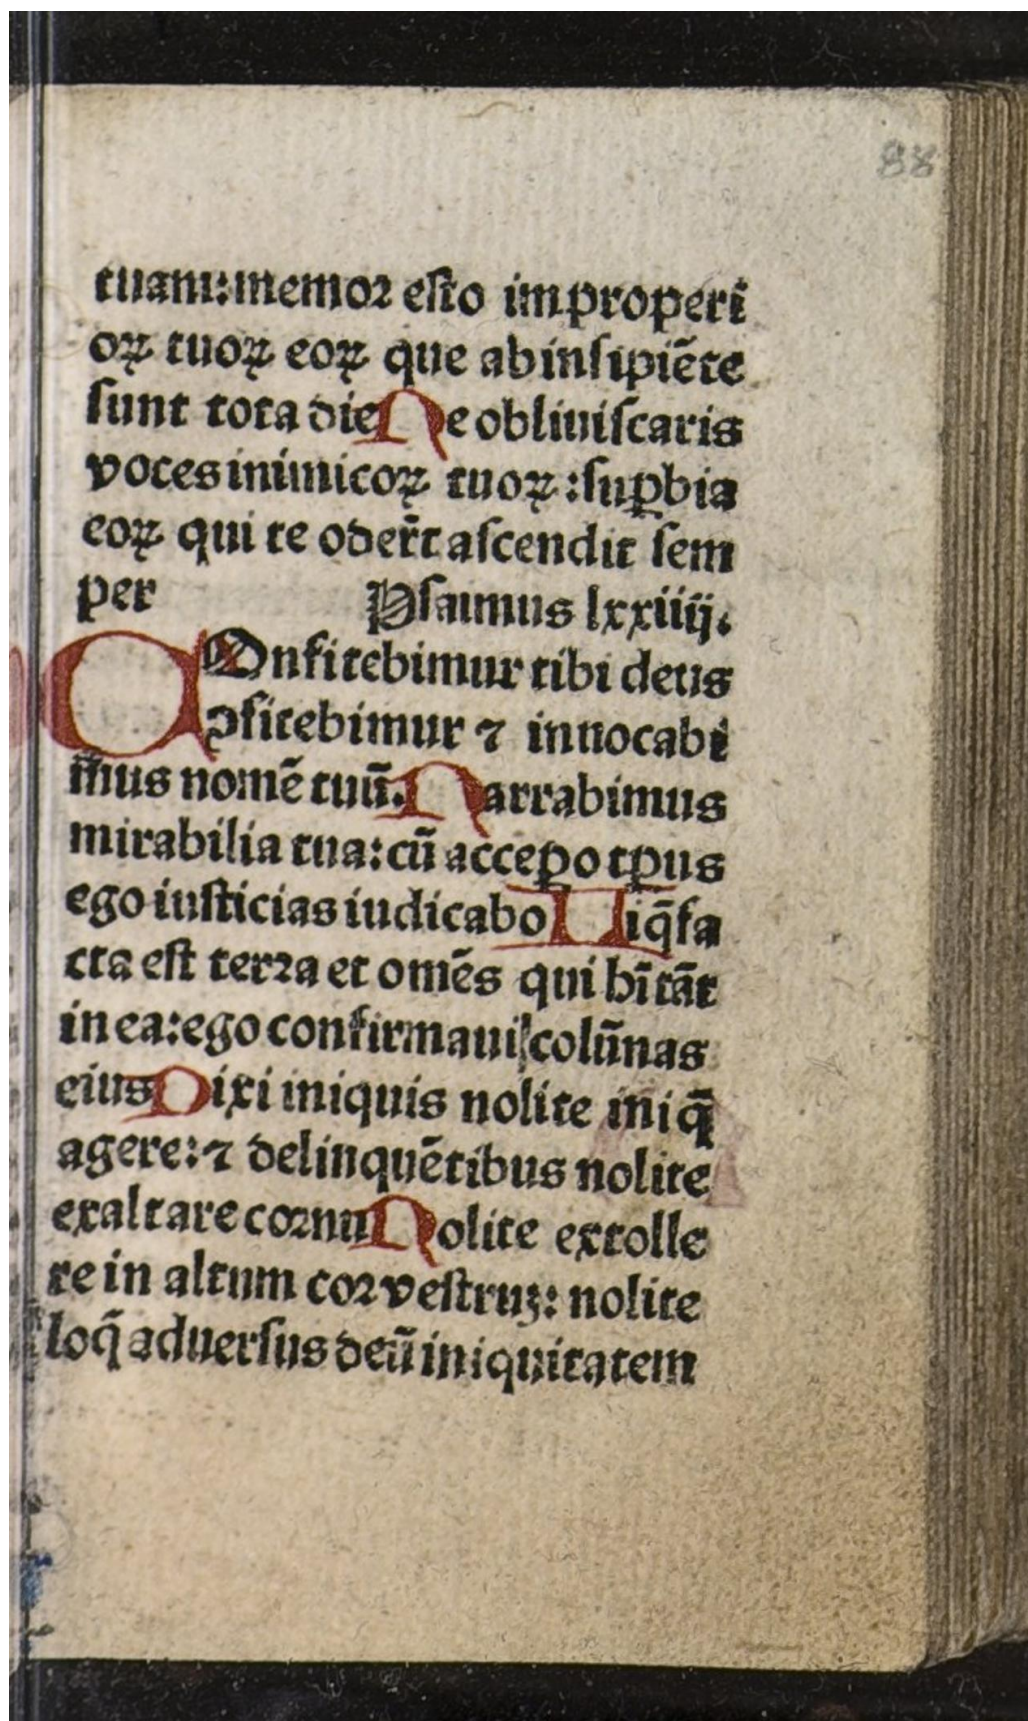 88
tuam:memoꝛ eſto improperi
oꝝ tuoꝝ eoꝝ que ab inſipiẽte
ſunt tota die Ne obliuiſcaris
voces inimicoꝝ tuoꝝ :ſuꝑbia
eoꝝ qui te oder̃t aſcendit ſem
per Pſalmus lxxiiij.
COnfitebimur tibi deus
ꝯfitebimur ⁊ inuocabi
mus nomẽ tuũ. Narrabimus
mirabilia tua:cũ accepo tp̃us
ego iuſticias iudicabo Liq̃fa
cta eſt terꝛa et omẽs qui hĩtãt
in ea:ego confirmaui colũnas
eius Dixi iniquis nolite iniq̃
agere:⁊ delinquẽtibus nolite
exaltare coꝛnu Nolite extolle
re in altum coꝛ veſtruꝫ: nolite
loq̃ aduerſus deũ iniquitatem